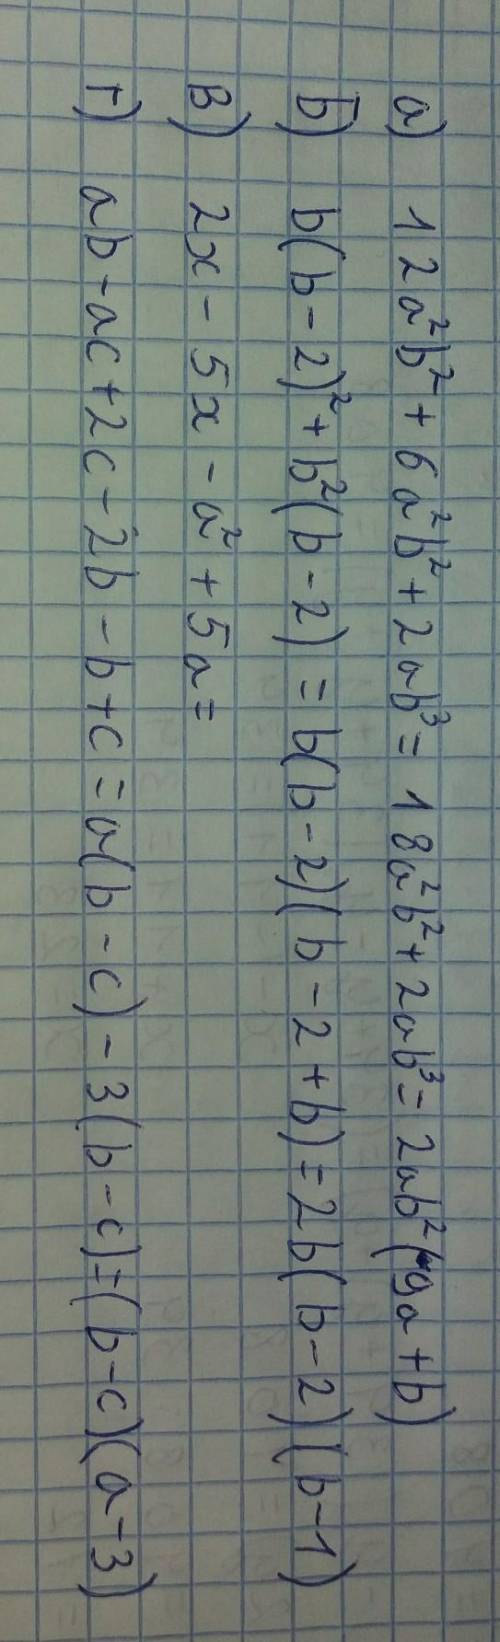 а) 12a²b² + 6a²b² + 2ab³ = 18a²b² + 2ab³ = 2ab²(9a + b)
б) b(b - 2)² + b²(b - 2) = b(b - 2)(b - 2 + b) = 2b(b - 2)(b - 1)
в) 2x - 5x - a² + 5a =
г) ab - ac + 2c - 2b - b + c = a(b - c) - 3(b - c) = (b - c)(a - 3)